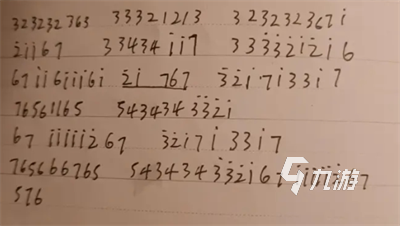 323232763 33321213 323232367i
2̇i̇i̇67 33434i̇i̇7 333̇3̇2̇i̇2̇i̇6
67i̇i̇6i̇i̇i̇6i̇ 2̇i̇ 767 3̇2̇i̇7i̇33i̇7
76561165 5434343̇3̇2̇i̇
67 i̇i̇i̇i̇i̇2̇67 3̇2̇i̇7i̇ 33i̇7
765666765 5434343̇3̇2̇i̇67
576
九游